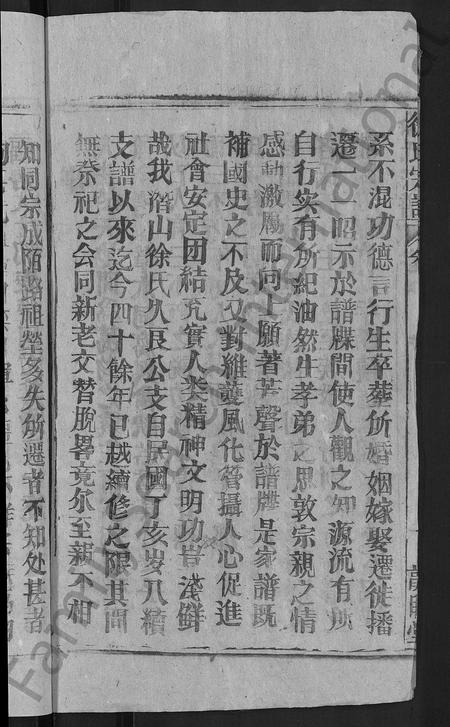 徐氏宗譜 卷
系不混功德言行生卒葬所婚姻嫁娶遷徙播
遷一一昭示於譜牒間使人觀之知源流有所
自行实有所紀油然生孝弟之思敦宗親之情
感動激勵而向上願著芳聲於譜牒是家譜既
補國史之不及又對維護風化管攝人心促進
社會安定团結充實人类精神文明功豈淺鮮
哉我潛山徐氏久良公支自民國丁亥岁八續
支譜以來迄今四十餘年已越續修之限其間
無祭祀之会同新老交替脫畧竟尔至親不相
知同宗成陌路祖塋多失所遷者不知处甚者